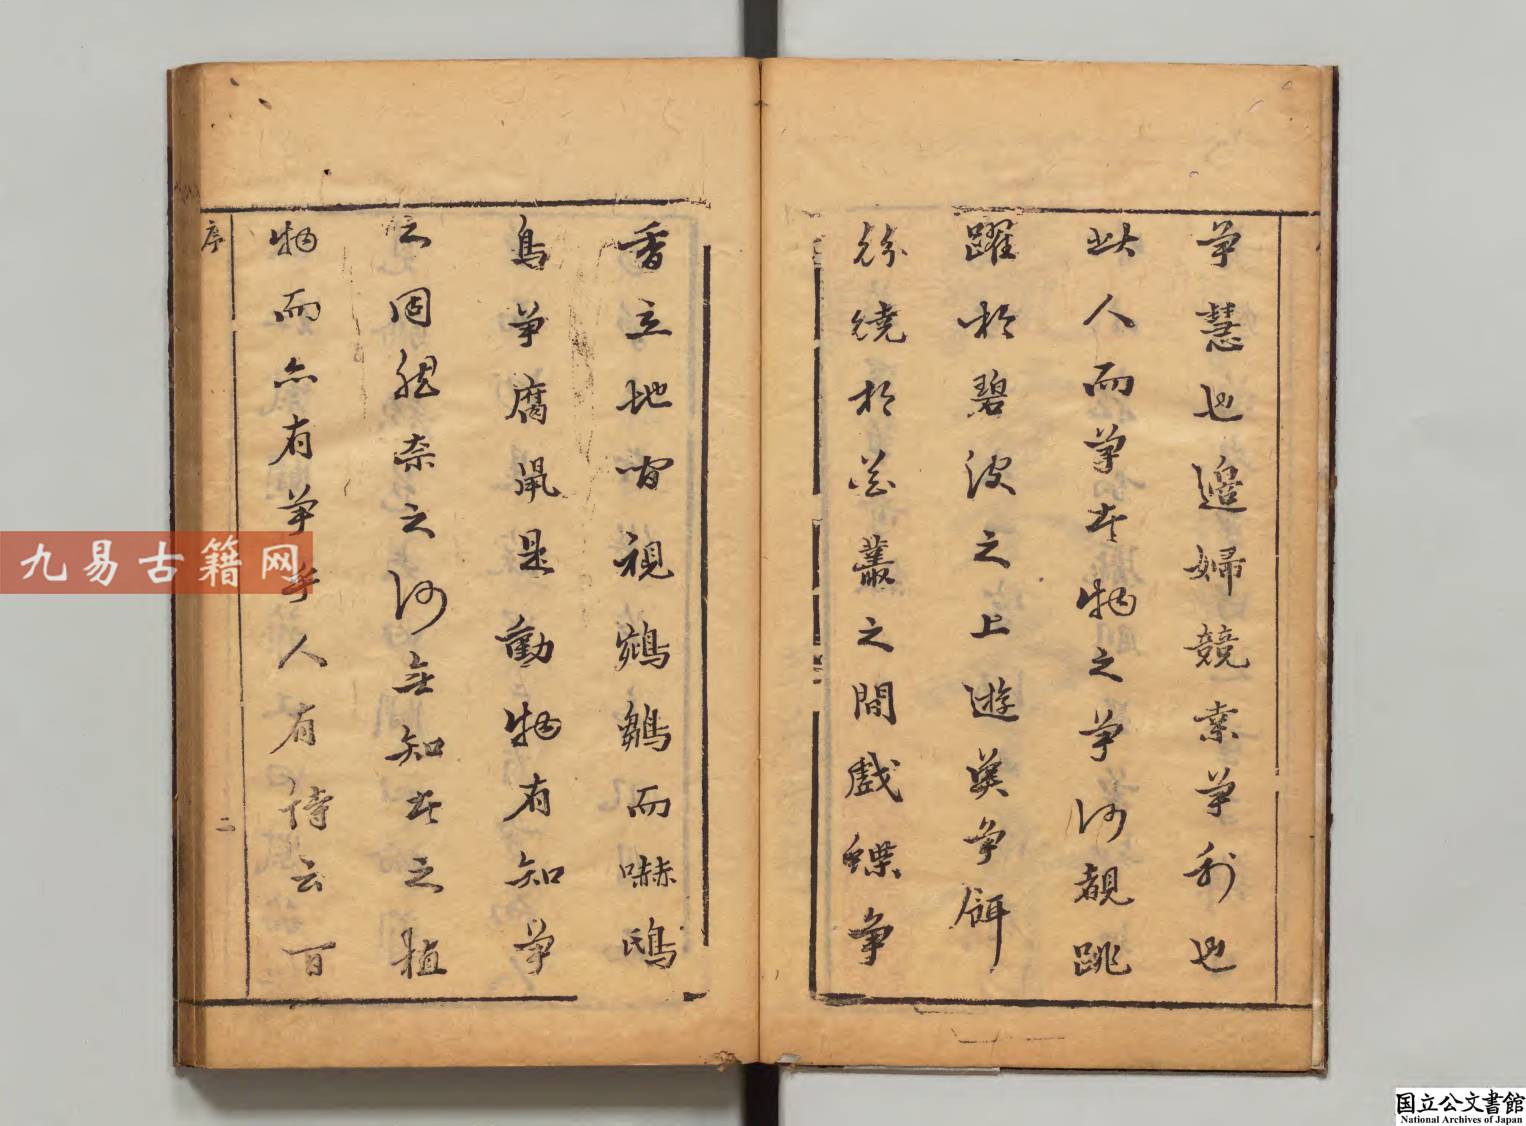 爭慧也邊婦競索爭利也
此人而爭者物之爭何觀跳
躍於碧波之上遊英爭餌
紛繞於花叢之間戲蝶爭
香立地胃視鵷鶵而嚇鴟
鳥爭腐鼠是動物有知爭
之固然奈之何無知者之植
物而亦有爭乎人有詩云百
序
二
九易古籍网
国立公文書館
National Archives of Japan